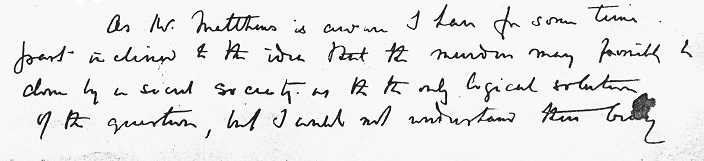 As Mr. Matthews is aware I have for some time
past inclined to the idea that the murders may possibly be
done by a secret society as the only logical solution
of the question, but I would not understand this being